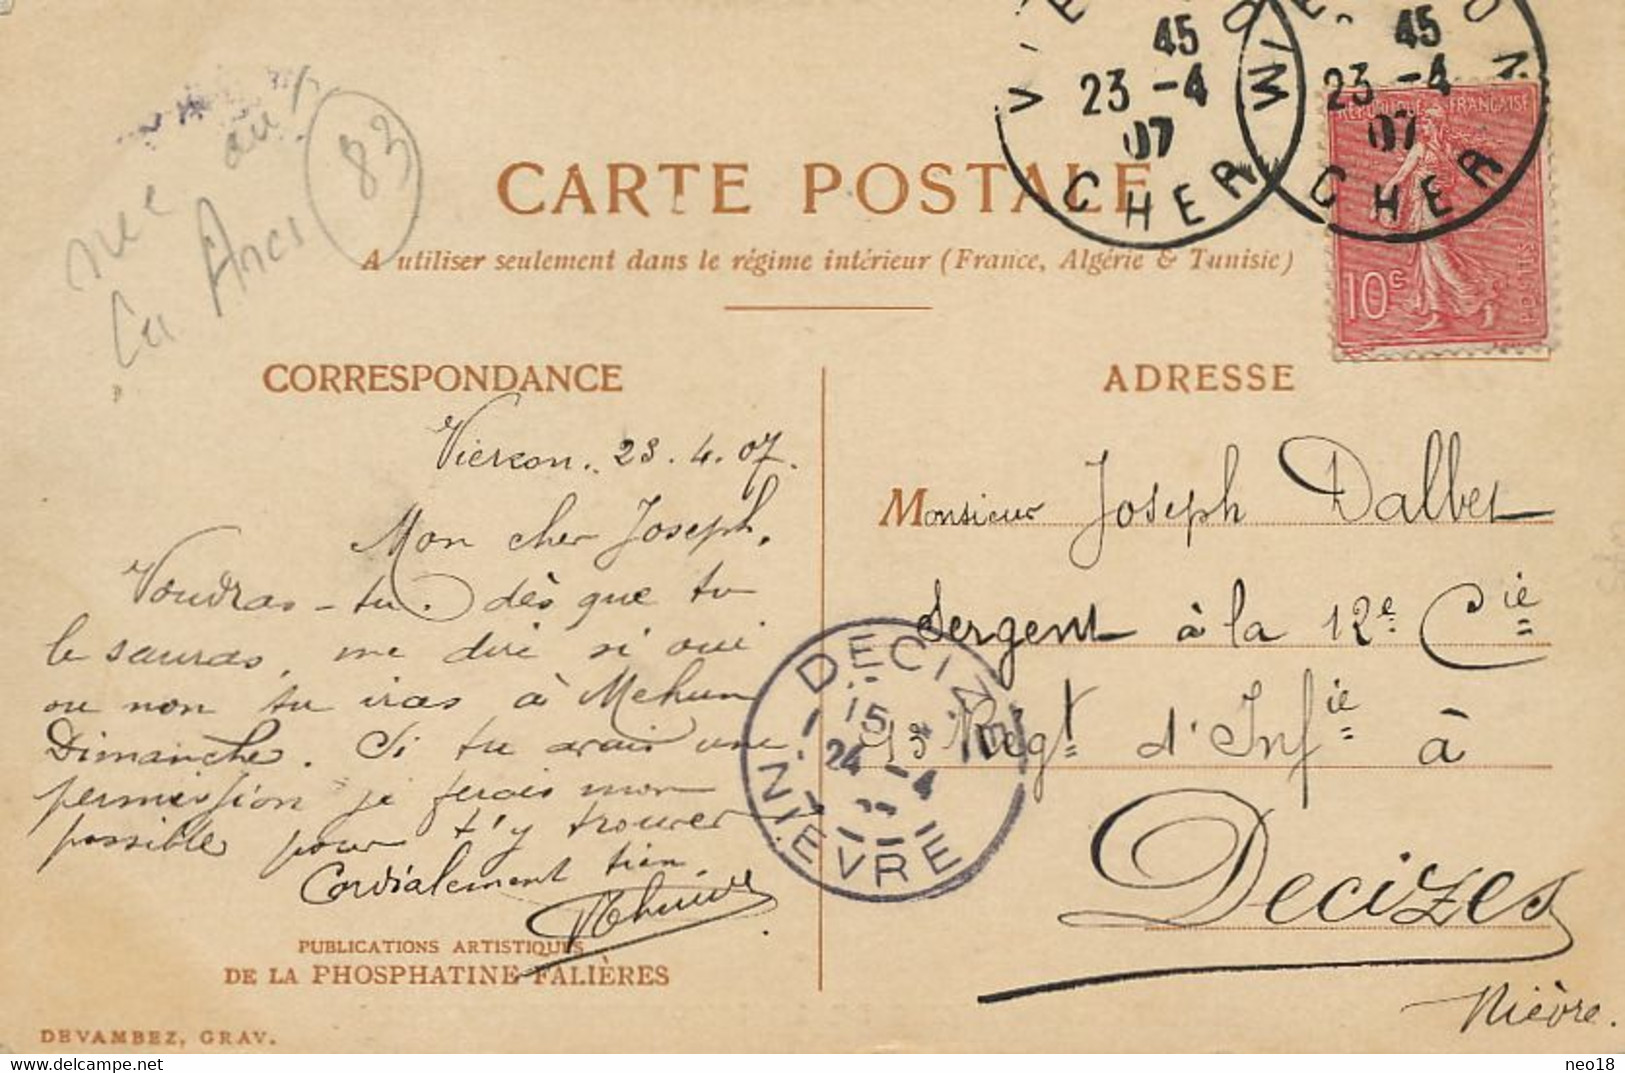 45
23 - 4
07
CHER
45
23 - 4
07
CHER
RÉPUBLIQUE FRANÇAISE
10c
POSTES
83
CARTE POSTALE
A utiliser seulement dans le régime intérieur (France, Algérie & Tunisie)
CORRESPONDANCE
Vierzon. 23.4.07.
Mon cher Joseph,
Voudras-tu, dès que tu
le sauras, me dire si oui
ou non tu iras à Mehun
Dimanche. Si tu avais une
permission je ferais mon
possible pour t'y trouver
Cordialement tien
PUBLICATIONS ARTISTIQUES
DE LA PHOSPHATINE FALIÈRES
DEVAMBEZ, GRAV.
ADRESSE
Monsieur Joseph Dalbet
Sergent à la 12e Cie
Régt d'Infie à
Decizes
Nièvre.
DECIZE
15
24 - 4
NIÈVRE
neo18